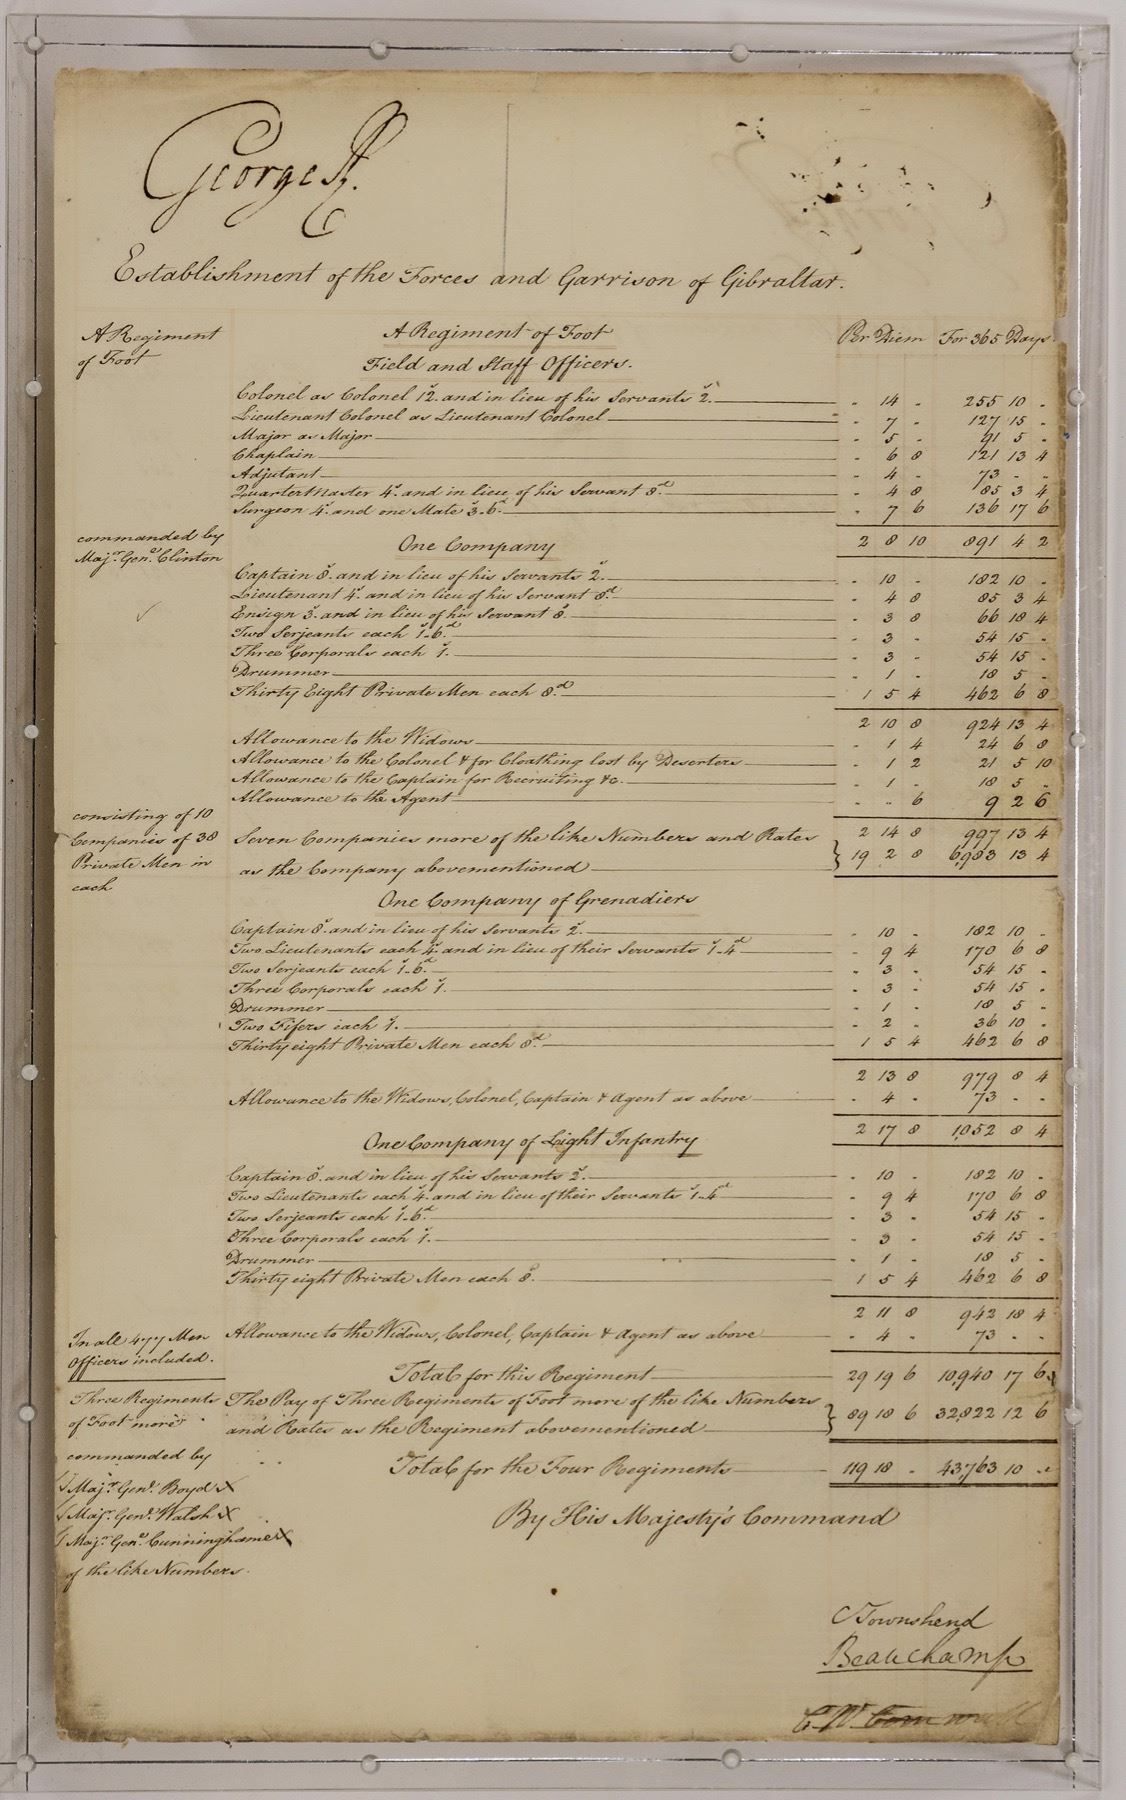 George R.
Establishment of the Forces and Garrison of Gibraltar.
A Regiment of Foot
A Regiment of Foot Per Diem For 365 Days
Field and Staff Officers.
Colonel as Colonel 12s. and in lieu of his Servants 2s. - 14 - 255 10 -
Lieutenant Colonel as Lieutenant Colonel - 7 - 127 15 -
Major as Major - 5 - 91 5 -
Chaplain - 6 8 121 13 4
Adjutant - 4 - 73 - -
QuarterMaster 4s. and in lieu of his Servant 8d. - 4 8 85 3 4
Surgeon 4s. and one Mate 3s.6d. - 7 6 136 17 6
2 8 10 891 4 2
commanded by
Majr. Genl. Clinton
One Company
Captain 8s. and in lieu of his Servants 2s. - 10 - 182 10 -
Lieutenant 4s. and in lieu of his Servant 8d. - 4 8 85 3 4
Ensign 3s. and in lieu of his Servant 8. - 3 8 66 18 4
Two Serjeants each 1s.6d. - 3 - 54 15 -
Three Corporals each 1s. - 3 - 54 15 -
Drummer - 1 - 18 5 -
Thirty Eight Private Men each 8d. 1 5 4 462 6 8
2 10 8 924 13 4
Allowance to the Widows - 1 4 24 6 8
Allowance to the Colonel & for Cloathing lost by Deserters - 1 2 21 5 10
Allowance to the Captain for Recruiting &c. - 1 - 18 5 -
Allowance to the Agent - - 6 9 2 6
2 14 8 997 13 4
consisting of 10
Companies of 38
Private Men in
each
Seven Companies more of the like Numbers and Rates
as the Company abovementioned } 19 2 8 6,983 13 4
One Company of Grenadiers
Captain 8s. and in lieu of his Servants 2s. - 10 - 182 10 -
Two Lieutenants each 4s. and in lieu of their Servants 1s.4d. - 9 4 170 6 8
Two Serjeants each 1s.6d. - 3 - 54 15 -
Three Corporals each 1s. - 3 - 54 15 -
Drummer - 1 - 18 5 -
Two Fifers each 1s. - 2 - 36 10 -
Thirty eight Private Men each 8d. 1 5 4 462 6 8
2 13 8 979 8 4
Allowance to the Widows, Colonel, Captain & Agent as above - 4 - 73 - -
2 17 8 1,052 8 4
One Company of Light Infantry
Captain 8s. and in lieu of his Servants 2s. - 10 - 182 10 -
Two Lieutenants each 4s. and in lieu of their Servants 1s.4d. - 9 4 170 6 8
Two Serjeants each 1s.6d. - 3 - 54 15 -
Three Corporals each 1s. - 3 - 54 15 -
Drummer - 1 - 18 5 -
Thirty eight Private Men each 8. 1 5 4 462 6 8
2 11 8 942 18 4
Allowance to the Widows, Colonel, Captain & Agent as above - 4 - 73 - -
In all 477 Men
Officers included.
Total for this Regiment 29 19 6 10,940 17 6
Three Regiments
of Foot more
commanded by
Majr. Genl. Boyd
Majr. Genl. Walsh
Majr. Genl. Cunninghame
of the like Numbers.
The Pay of Three Regiments of Foot more of the like Numbers
and Rates as the Regiment abovementioned } 89 18 6 32,822 12 6
Total for the Four Regiments 119 18 - 43,763 10 -
By His Majesty's Command
C Townshend
Beauchamp
C. W. Cornwall